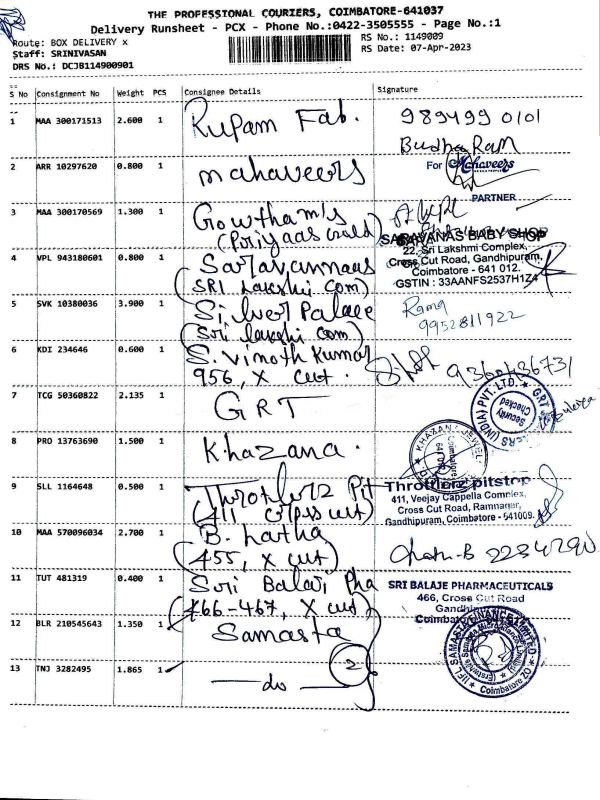 THE PROFESSIONAL COURIERS, COIMBATORE-641037
Delivery Runsheet - PCX - Phone No.:0422-3505555 - Page No.:1
Route: BOX DELIVERY x
RS No.: 1149009
Staff: SRINIVASAN
RS Date: 07-Apr-2023
DRS No.: DCJB114900901
S No Consignment No Weight PCS Consignee Details Signature
1 MAA 300171513 2.600 1 Rupam Fab. 989499 0101
Budha Ram
2 ARR 10297620 0.800 1 mahaveers For Mahaveers
PARTNER
3 MAA 300170569 1.300 1 Gowtham's
(Poriyaas
4 VPL 943180601 0.800 1 Saravannaas
(SRI Lakshi Com)
SARAVANAS BABY SHOP
22, Sri Lakshmi Complex,
Cross Cut Road, Gandhipuram,
Coimbatore - 641 012.
GSTIN : 33AANFS2537H1Z4
5 SVK 10380036 3.900 1 Silver Palace
(Sri lakshi Com)
Rama
9952811922
6 KDI 234646 0.600 1 S. Vinoth Kumar
956, X cut. 9360436731
7 TCG 50360822 2.135 1 GRT
(INDIA) PVT. LTD. GRT
Security
Checked
8 PRO 13763690 1.500 1 Khazana.
KHAZANA JEWEL
9 SLL 1164648 0.500 1 Throtlerz Pit
(411 cross cut)
Throttlerz pitstop
411, Veejay Cappella Complex,
Cross Cut Road, Ramnagar,
Gandhipuram, Coimbatore - 641009.
10 MAA 570096034 2.700 1 B. Latha
(455, X cut)
11 TUT 481319 0.400 1 Sri Balaji Pha
(466-467, X cut)
SRI BALAJE PHARMACEUTICALS
466, Cross Cut Road
12 BLR 210545643 1.350 1 Samasta
IIFL SAMASTA FINANCE LIMITED
Coimbatore ZO
13 TNJ 3282495 1.865 1 — do — 2